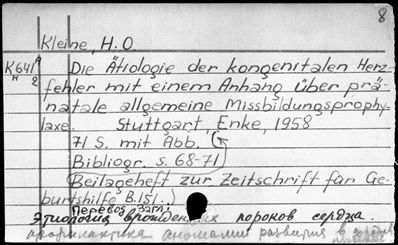 8
Kleine, H.O.
K641 A Die Ätiologie der kongenitalen Herz-
H 2 fehler mit einem Anhang über prä-
natale allgemeine Missbildungsprophy-
laxe. Stuttgart, Enke, 1958
71 S. mit Abb. (
Bibliogr. s. 68-71)
(Beilageheft zur Zeitschrift für Ge-
burtshilfe B.151.)
Перевод загл.:
Этиология врожденных пороков сердца.
профилактика аномалии развития в